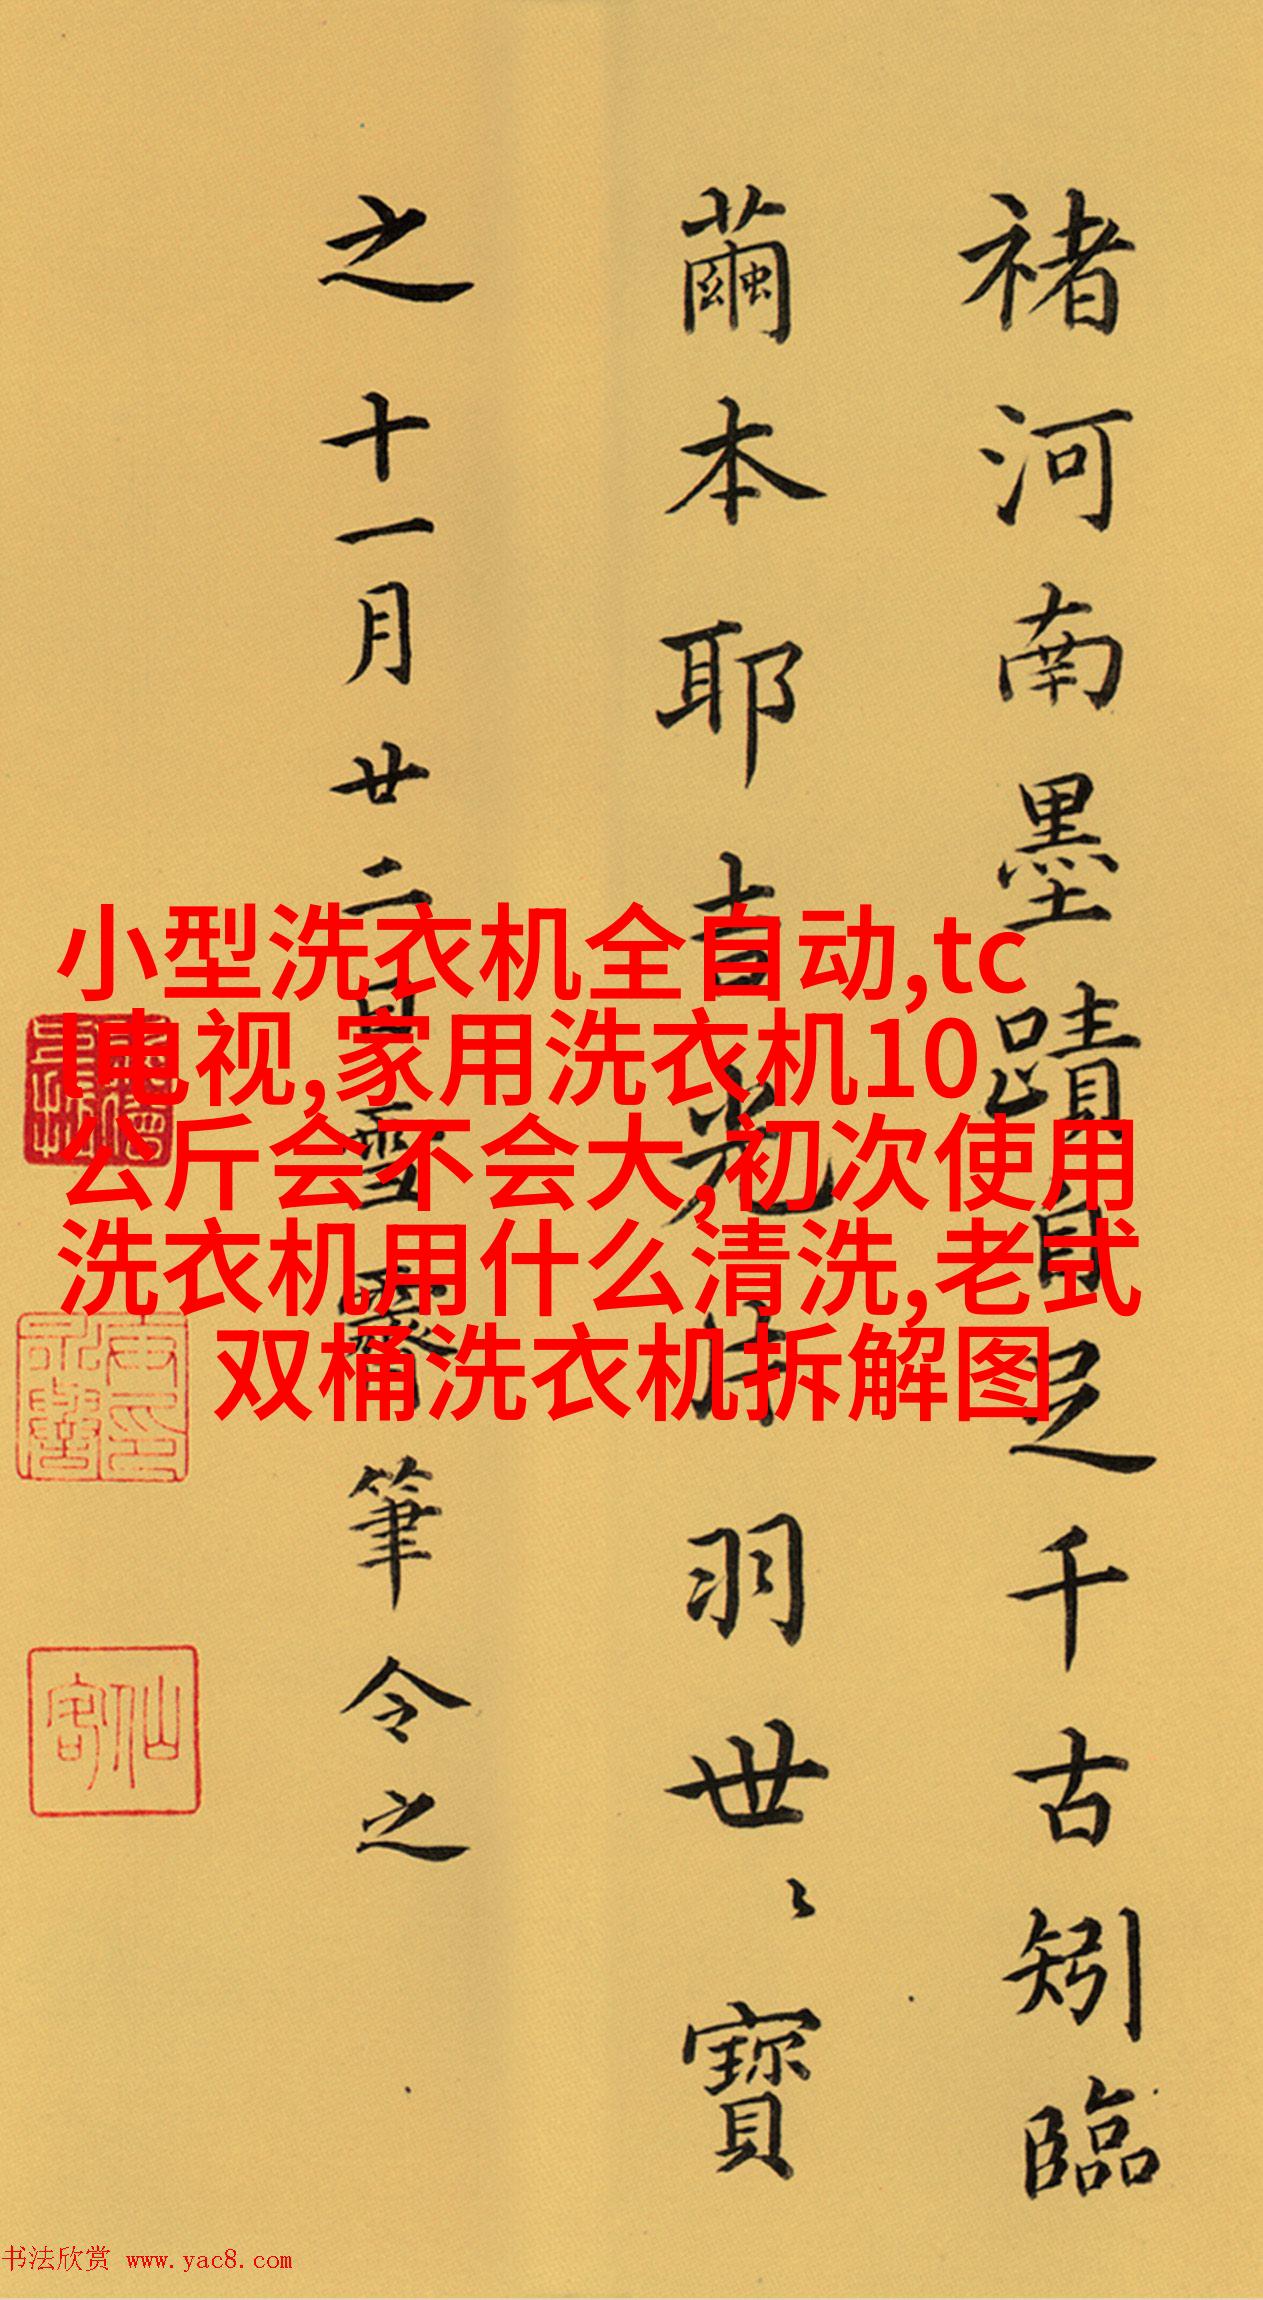 褚河南墨蹟自足千古矧臨
繭本耶吉光片羽世〻寶
之十一月廿二日雪霽筆令之
小型洗衣机全自动,tc
l电视,家用洗衣机10
公斤会不会大,初次使用
洗衣机用什么清洗,老式
双桶洗衣机拆解图
仙客
书法欣赏 www.yac8.com